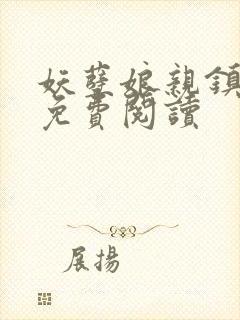 妖孽娘親鎮
免費閱讀
展揚